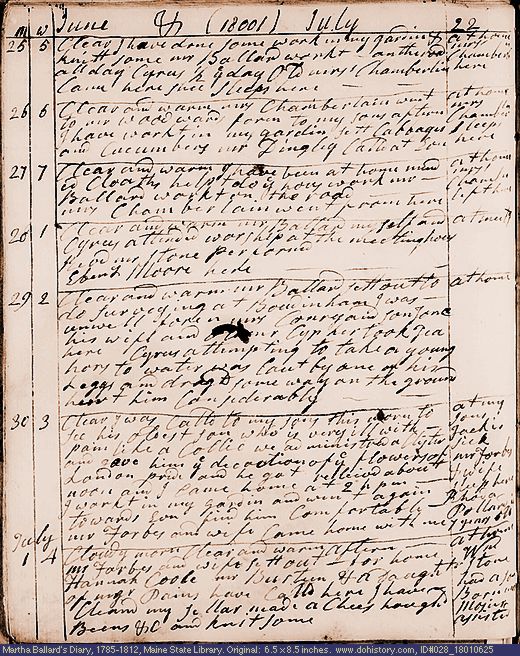 m w June & (1801) July 22
25 5 Clear I have done some work in my gardin &
knitt some mr Ballard workt on the road at home
all day Cyrus ½ y day Old mrs Chamberlin mrs Chamberlin
Came here shee Sleeps here here
26 6 Clear and warm mrs Chamberlain went at home
to mr Wood ward foren to my sons aftern mrs
I have workt in my gardin sett Cabbages Sleeps
and Cucumbers mr Dingley here
27 7 Clear and warm I have been at home mend at home
Cloaths helpt do y hous work mr mrs
Ballard workt on the road
mrs Chamberlain went from here left here
28 1 Clear and warm mr Ballard my self and at meetg
Cyrus attind worship at the meeting hous
revd mr Stone performd
Ebenr Moore here
29 2 Clear and warm mr Ballard sett out to at home
do Surveying at Bowdinham I was
unwell foren mrs
his wife and took Tea
here Cyrus attempting to take a young
hors to water was Caut by one of his
leggs and dragd some way on the ground
hurt him Considerably
30 3 Clear I was Calld to my sons this morn to at my
see his oldest son who is very ill with sons
pain like a Collic we administred a Clister Jack is
and gave him y decoction of y flowers of sick
london pride and he got relievd about mr forbes
noon and I Came home at 2 h pm & wife
I workt in my gardin and went again sleep here
towards Evn find him Comfortable
mr forbes and wife Came home with me
July
1 4 Clowdy morn Clear and warm aftern at home
mr forbes and wife sett out for home
Hannah Coole mr Burtun & a daughtr
of mrs Pains have Calld here I have
Cleand my sellar made a Chees houghd
Beens &C and knit some
Martha Ballard's Diary, 1785-1812, Maine State Library. Original: 6.5 x 8.5 inches. © www.dohistory.com, ID#028_18010625